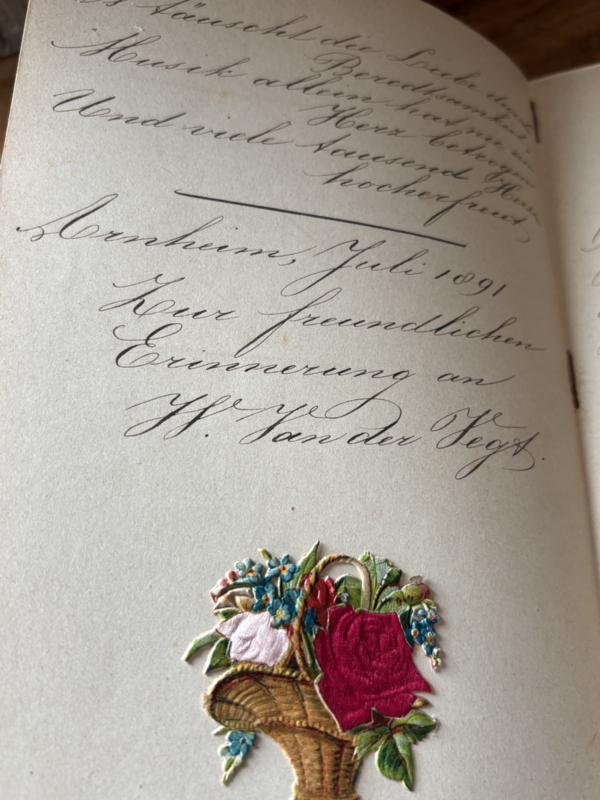 täuscht die Liebe
Beredtsamkeit
Musik allein hat
Herz
Und viele tausend
hocherfreut,
Arnheim, Juli 1891
Zur freundlichen
Erinnerung an
W. Van der Vegt.